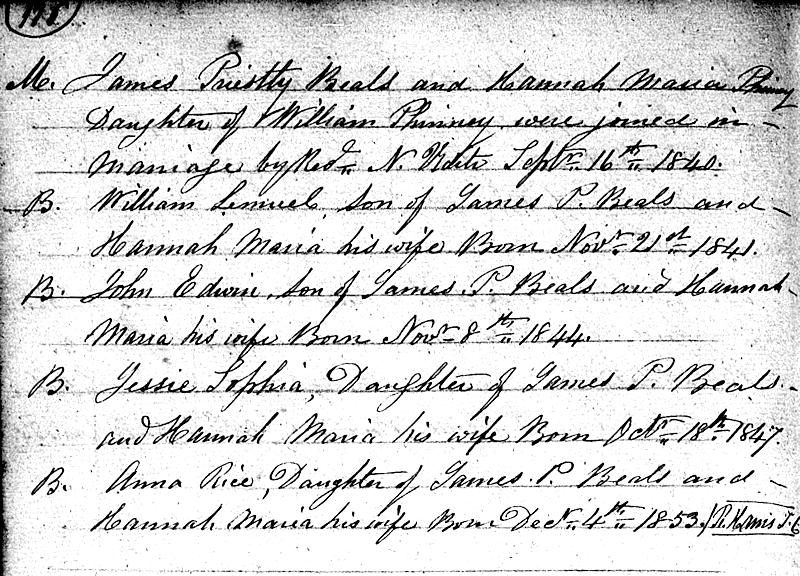 M. James Priestly Beals and Hannah Maria Phinney
Daughter of William Phinney were joined in
marriage by Revd N. Septr 16th 1840.
B. William Lemuel, son of James P. Beals and
Hannah Maria his wife Born Novr 21st 1841.
B. John Edwin, son of James P. Beals and Hannah
Maria his wife Born Novr 8th 1844.
B. Jessie Sophia, Daughter of James P. Beals
and Hannah Maria his wife Born Octr 18th 1847.
B. Anna Rice, Daughter of James P. Beals and
Hannah Maria his wife Born Decr 4th 1853.